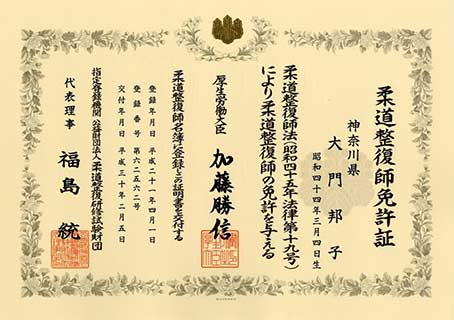 柔道整復師免許証
神奈川県
大門邦子
昭和四十四年三月四日生
柔道整復師法(昭和四十五年法律第十九号)
により柔道整復師の免許を与える
厚生労働大臣 加藤勝信
柔道整復師名簿に登録しこの証明書を交付する
登録年月日 平成二十一年四月一日
登録番号 第六二五六二号
交付年月日 平成三十年二月五日
指定登録機関 公益財団法人 柔道整復研修試験財団
代表理事 福島統